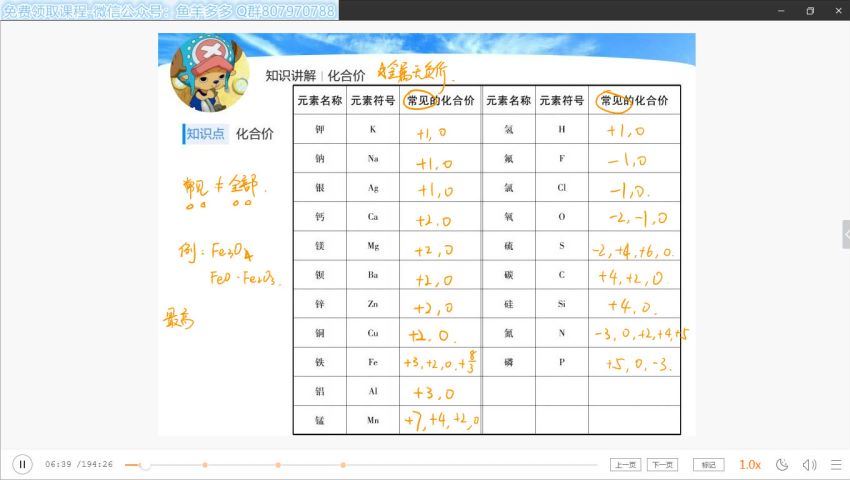 免费领取课程-微信公众号：鱼羊多多 Q群807970788
知识讲解 | 化合价 金属无负价.
知识点 化合价
常见 ≠ 全部.
例: Fe₃O₄
FeO·Fe₂O₃.
最高
元素名称 元素符号 常见的化合价 元素名称 元素符号 常见的化合价
钾 K +1, 0 氢 H +1, 0
钠 Na +1, 0 氟 F -1, 0
银 Ag +1, 0 氯 Cl -1, 0.
钙 Ca +2, 0 氧 O -2, -1, 0
镁 Mg +2, 0 硫 S -2, +4, +6, 0.
钡 Ba +2, 0 碳 C +4, +2, 0.
锌 Zn +2, 0 硅 Si +4, 0.
铜 Cu +2, 0. 氮 N -3, 0, +2, +4, +5
铁 Fe +3, +2, 0, +8/3 磷 P +5, 0, -3.
铝 Al +3, 0
锰 Mn +7, +4, +2, 0
06:39 /194:26 上一页 下一页 标记 1.0x